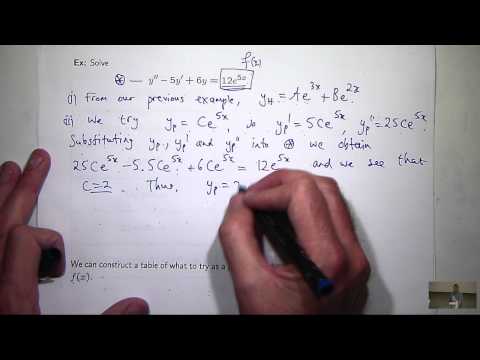 f(x)
Ex: Solve
⊛ — y'' − 5y' + 6y = 12e^{5x}
(i) From our previous example, y_H = Ae^{3x} + Be^{2x}.
(ii) We try y_p = Ce^{5x}, so y_p' = 5Ce^{5x}, y_p'' = 25Ce^{5x}.
Substituting y_p, y_p' and y_p'' into ⊛ we obtain
25Ce^{5x} − 5.5Ce^{5x} + 6Ce^{5x} = 12e^{5x} and we see that
C = 2. Thus, y_p = 2
We can construct a table of what to try as a
f(x).